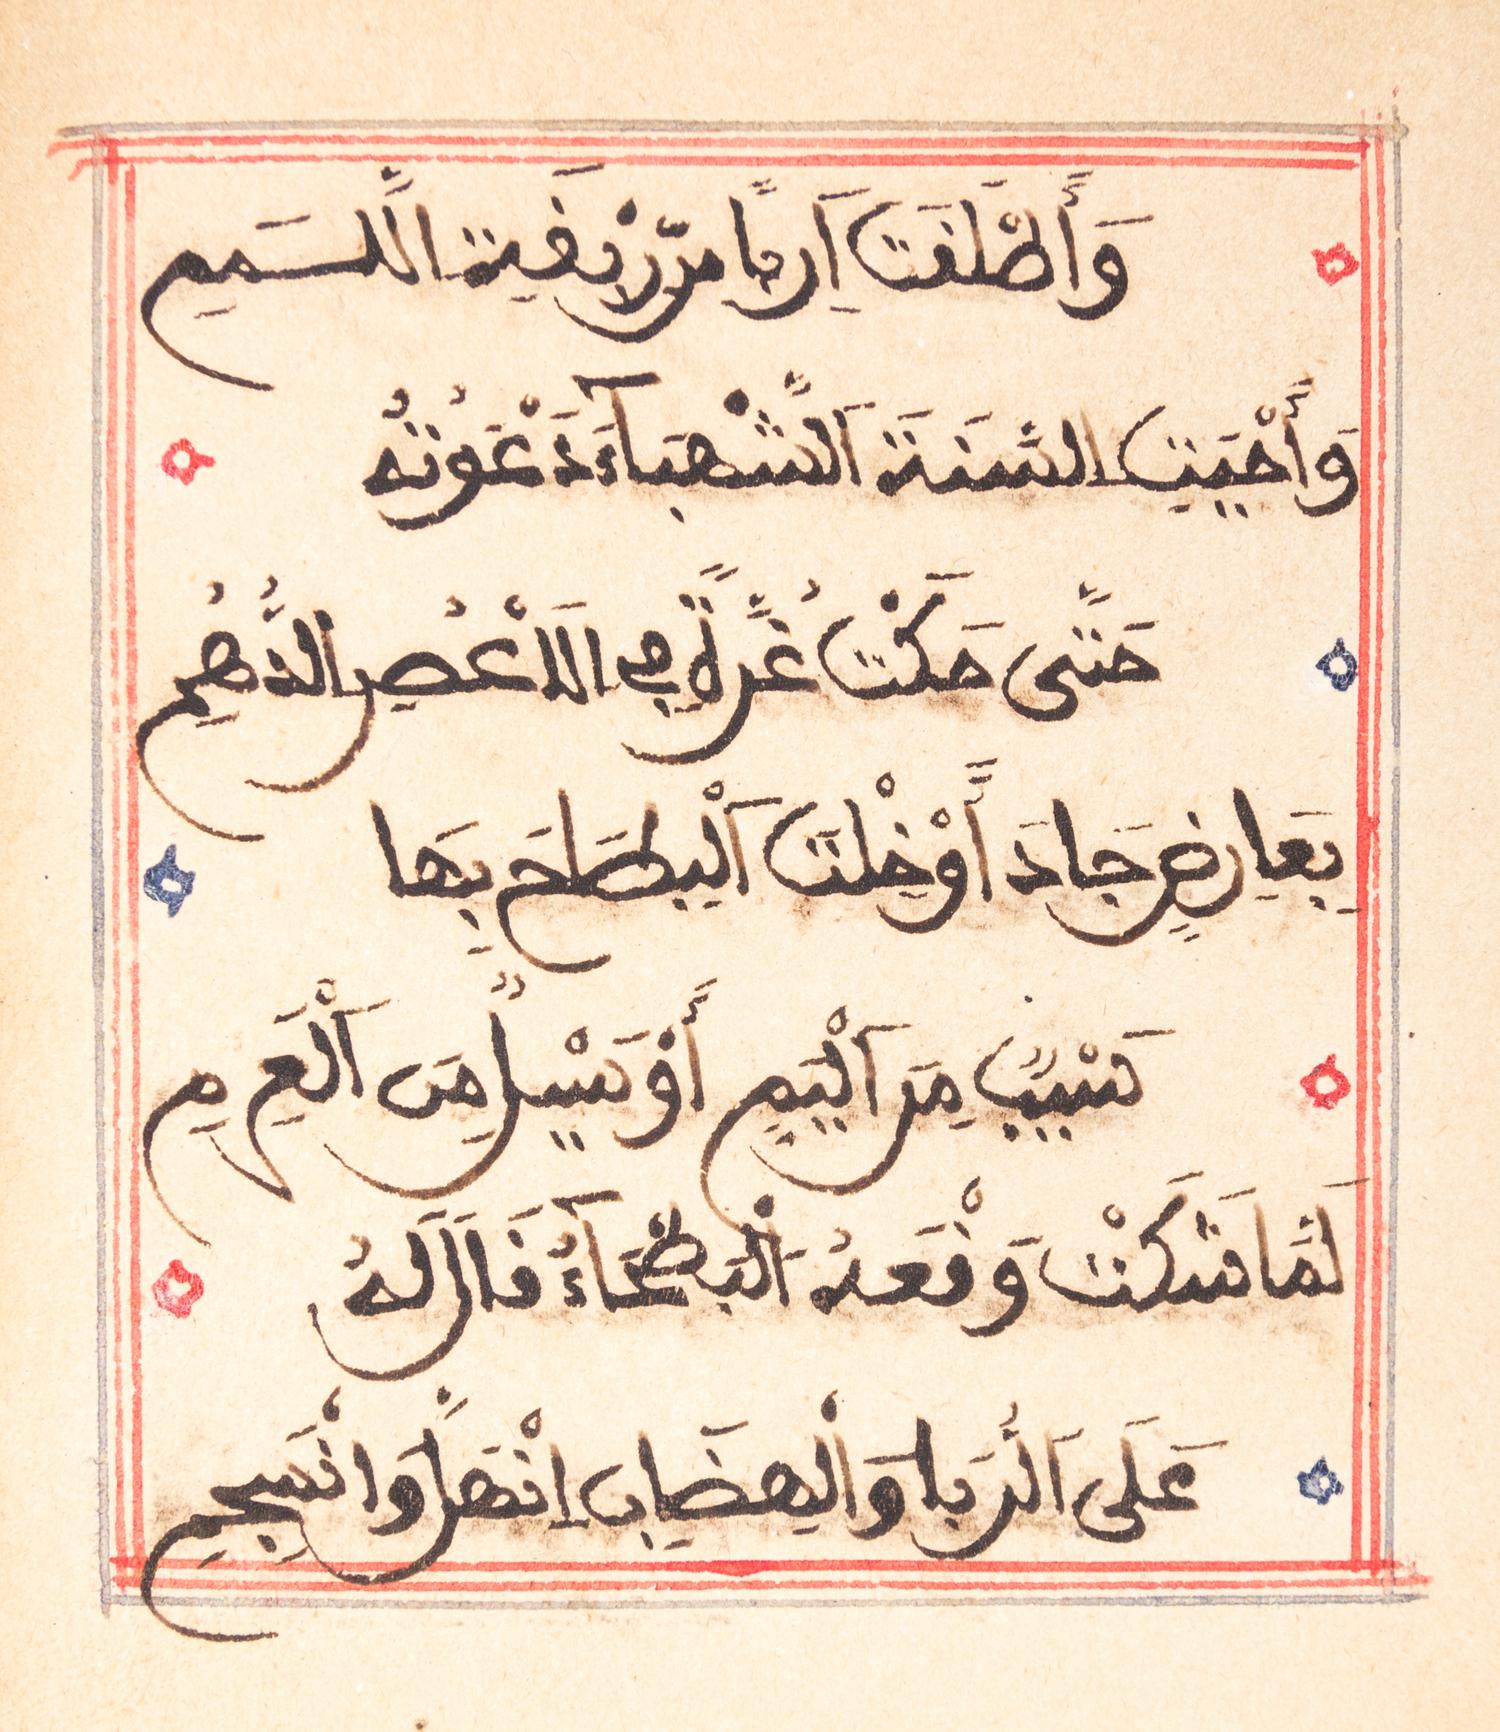 وَأَطْلَقَتْ اَرِبًا مِّن رِّبْقَةِ اللَّمَمِ
وَأَحْيَتِ السَّنَةَ الشَّهْبَآءَ دَعْوَتُهُ
حَتَّى حَكَتْ غُرَّةً فِي الَاعْصُرِ الدُّهُمِ
بِعَارِضٍ جَادَ أَوْ خِلْتَ الْبِطَاحَ بِهَا
سَيْبٌ مِّنَ الْيَمِّ أَوْ سَيْلٌ مِّنَ الْعَرِمِ
لَمَّا شَكَتْ وَقْعَهُ الْبَطْحَآءُ قَالَ لَهُ
عَلَى الرُّبَا وَالْهِضَابِ انْهَلْ وَانْسَجِمِ